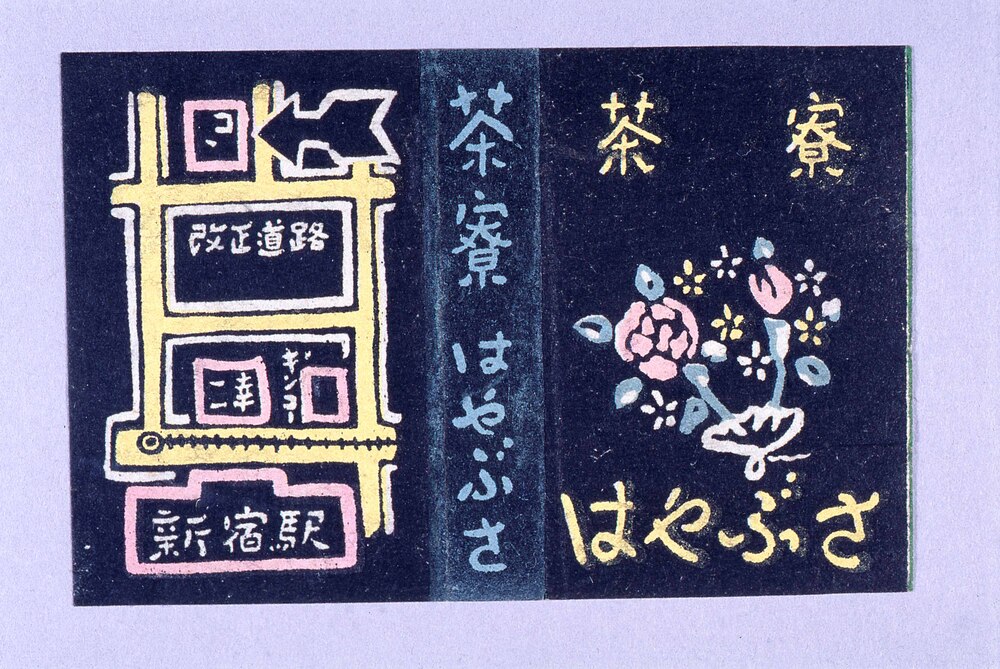 茶寮
はやぶさ
茶寮 はやぶさ
改正道路
二幸
ギンコー
新宿駅